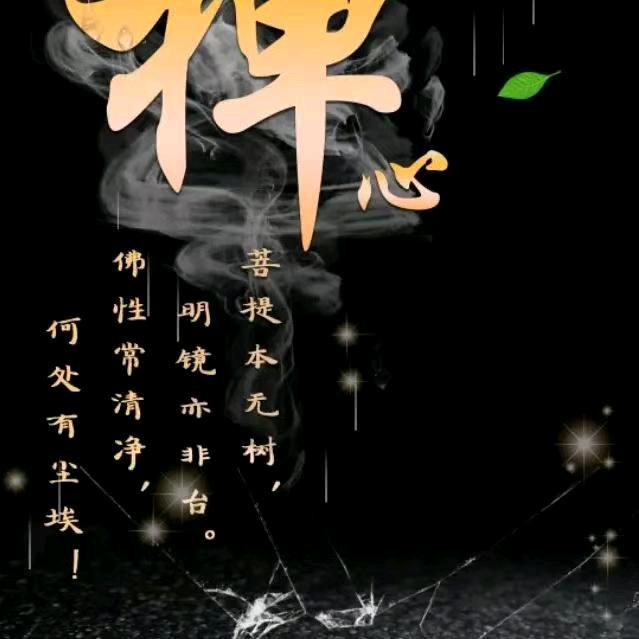 禅
心
菩提本无树，
明镜亦非台。
佛性常清净，
何处有尘埃！